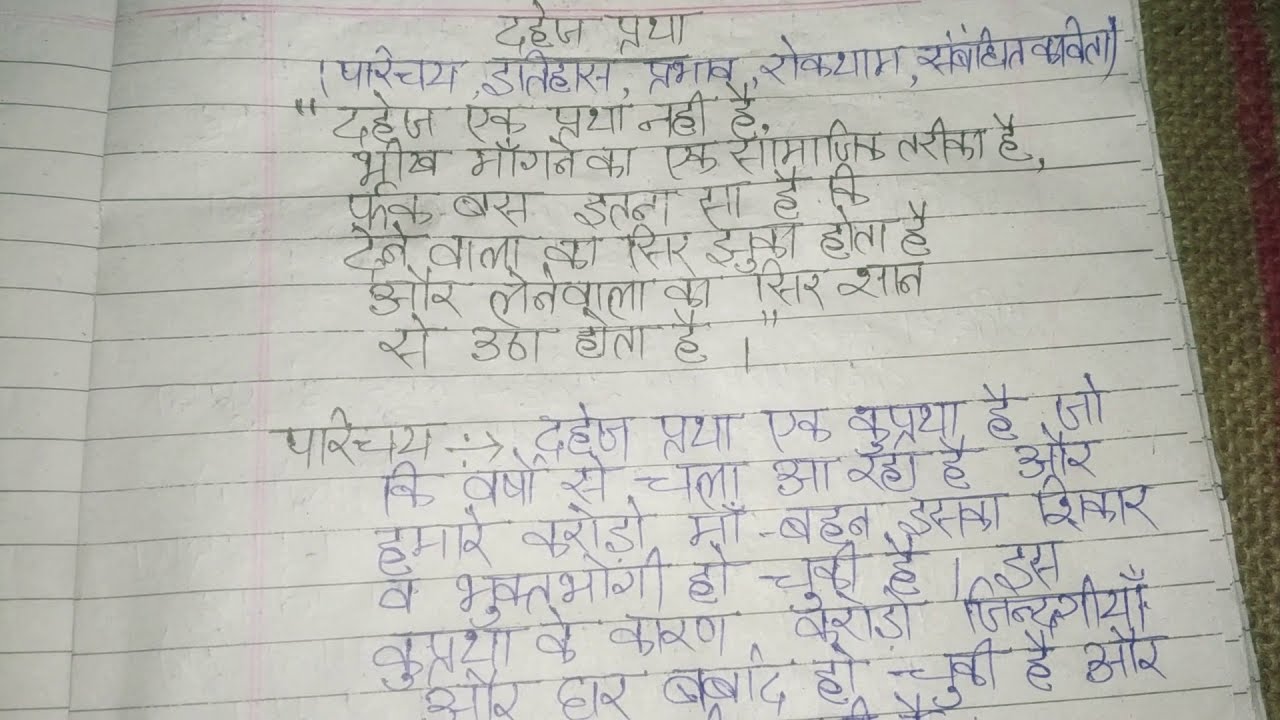 दहेज प्रथा
(परिचय, इतिहास, प्रभाव, रोकथाम, संबंधित कविता)
" दहेज एक प्रथा नहीं है,
भीख माँगने का एक सामाजिक तरीका है,
फर्क बस इतना सा है कि
देने वाला का सिर झुका होता है
और लेनेवाला का सिर शान
से उठा होता है ।"
परिचय :→ दहेज प्रथा एक कुप्रथा है जो
कि वर्षों से चला आ रहा है और
हमारे करोड़ो माँ-बहन इसका शिकार
व भुक्तभोगी हो चुकी है । इस
कुप्रथा के कारण करोड़ो जिन्दगीयाँ
और घर बर्बाद हो चुकी है और